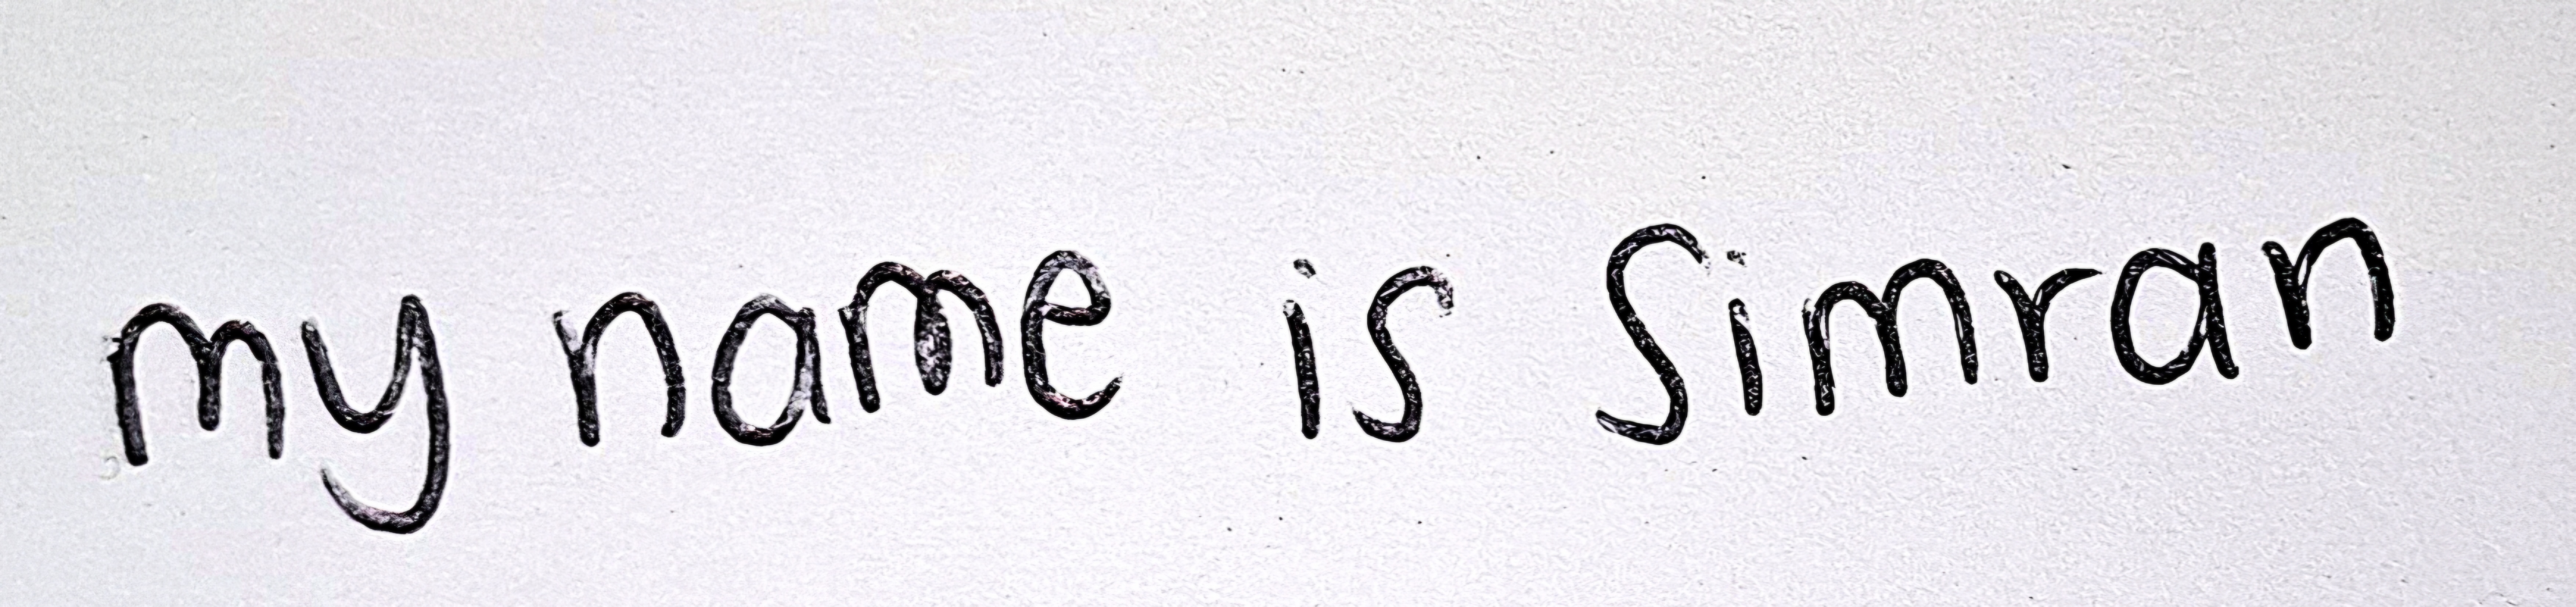 my name is Simran